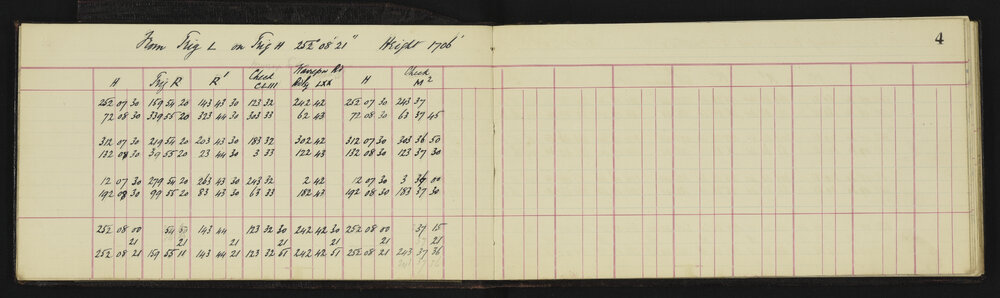 4
From Trig L on Trig H 252° 08' 21" Height 1706'
H Trig R R' Check CLIII Rd LXX H Check M2
252 07 30 159 54 20 143 43 30 123 32 242 42 252 07 30 243 37
72 08 30 339 55 20 323 44 30 303 33 62 43 72 08 30 63 37 45
312 07 30 219 54 20 203 43 30 183 32 302 42 312 07 30 303 36 50
132 08 30 39 55 20 23 44 30 3 33 122 43 132 08 30 123 37 30
12 07 30 279 54 20 263 43 30 243 32 2 42 12 07 30 3 36 00
192 08 30 99 55 20 83 43 30 63 33 182 43 192 08 30 183 37 30
252 08 00 54 50 143 44 123 32 30 242 42 30 252 08 00 37 15
21 21 21 21 21 21 21
252 08 21 159 55 11 143 44 21 123 32 51 242 42 51 252 08 21 243 37 36